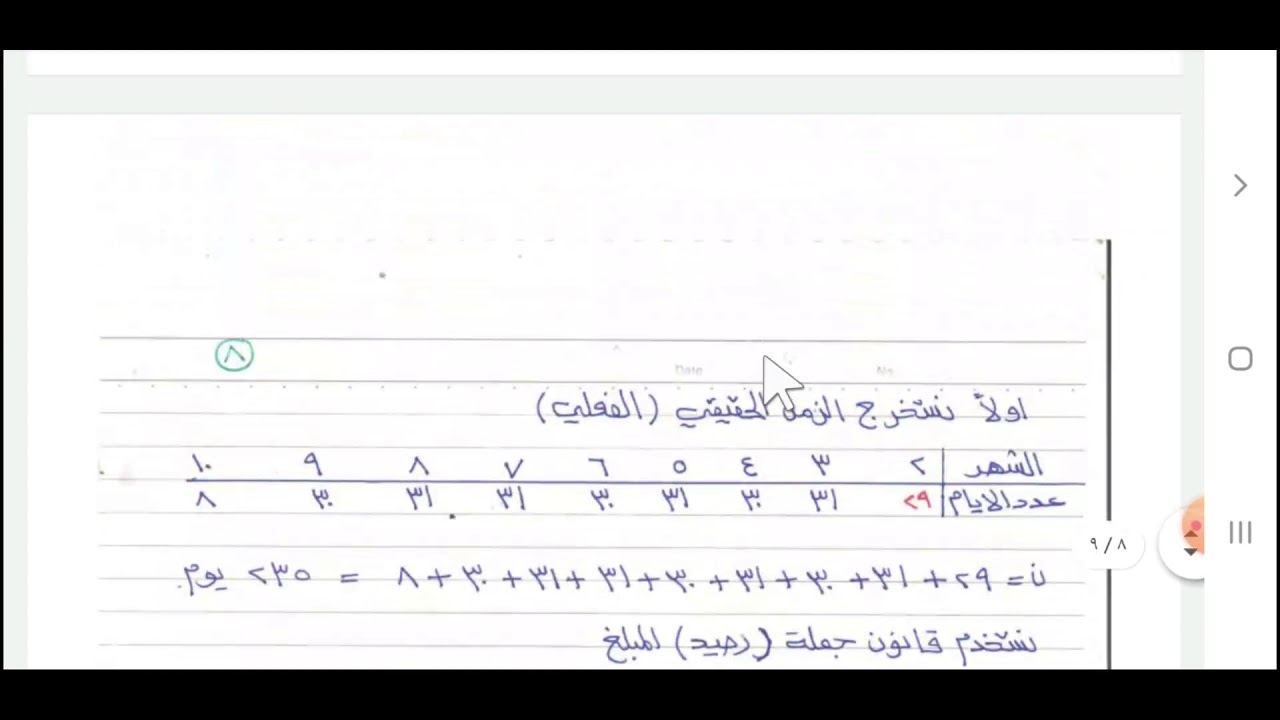 ٨
Date No
اولاً نستخرج الزمن الحقيقي (الفعلي)
الشهر ٢ ٣ ٤ ٥ ٦ ٧ ٨ ٩ ١٠
عدد الايام ٢٩ ٣١ ٣٠ ٣١ ٣٠ ٣١ ٣١ ٣٠ ٨
ن = ٢٩ + ٣١ + ٣٠ + ٣١ + ٣٠ + ٣١ + ٣١ + ٣٠ + ٨ = ٢٣٥ يوم.
نستخدم قانون جملة (رصيد) المبلغ
٩/٨